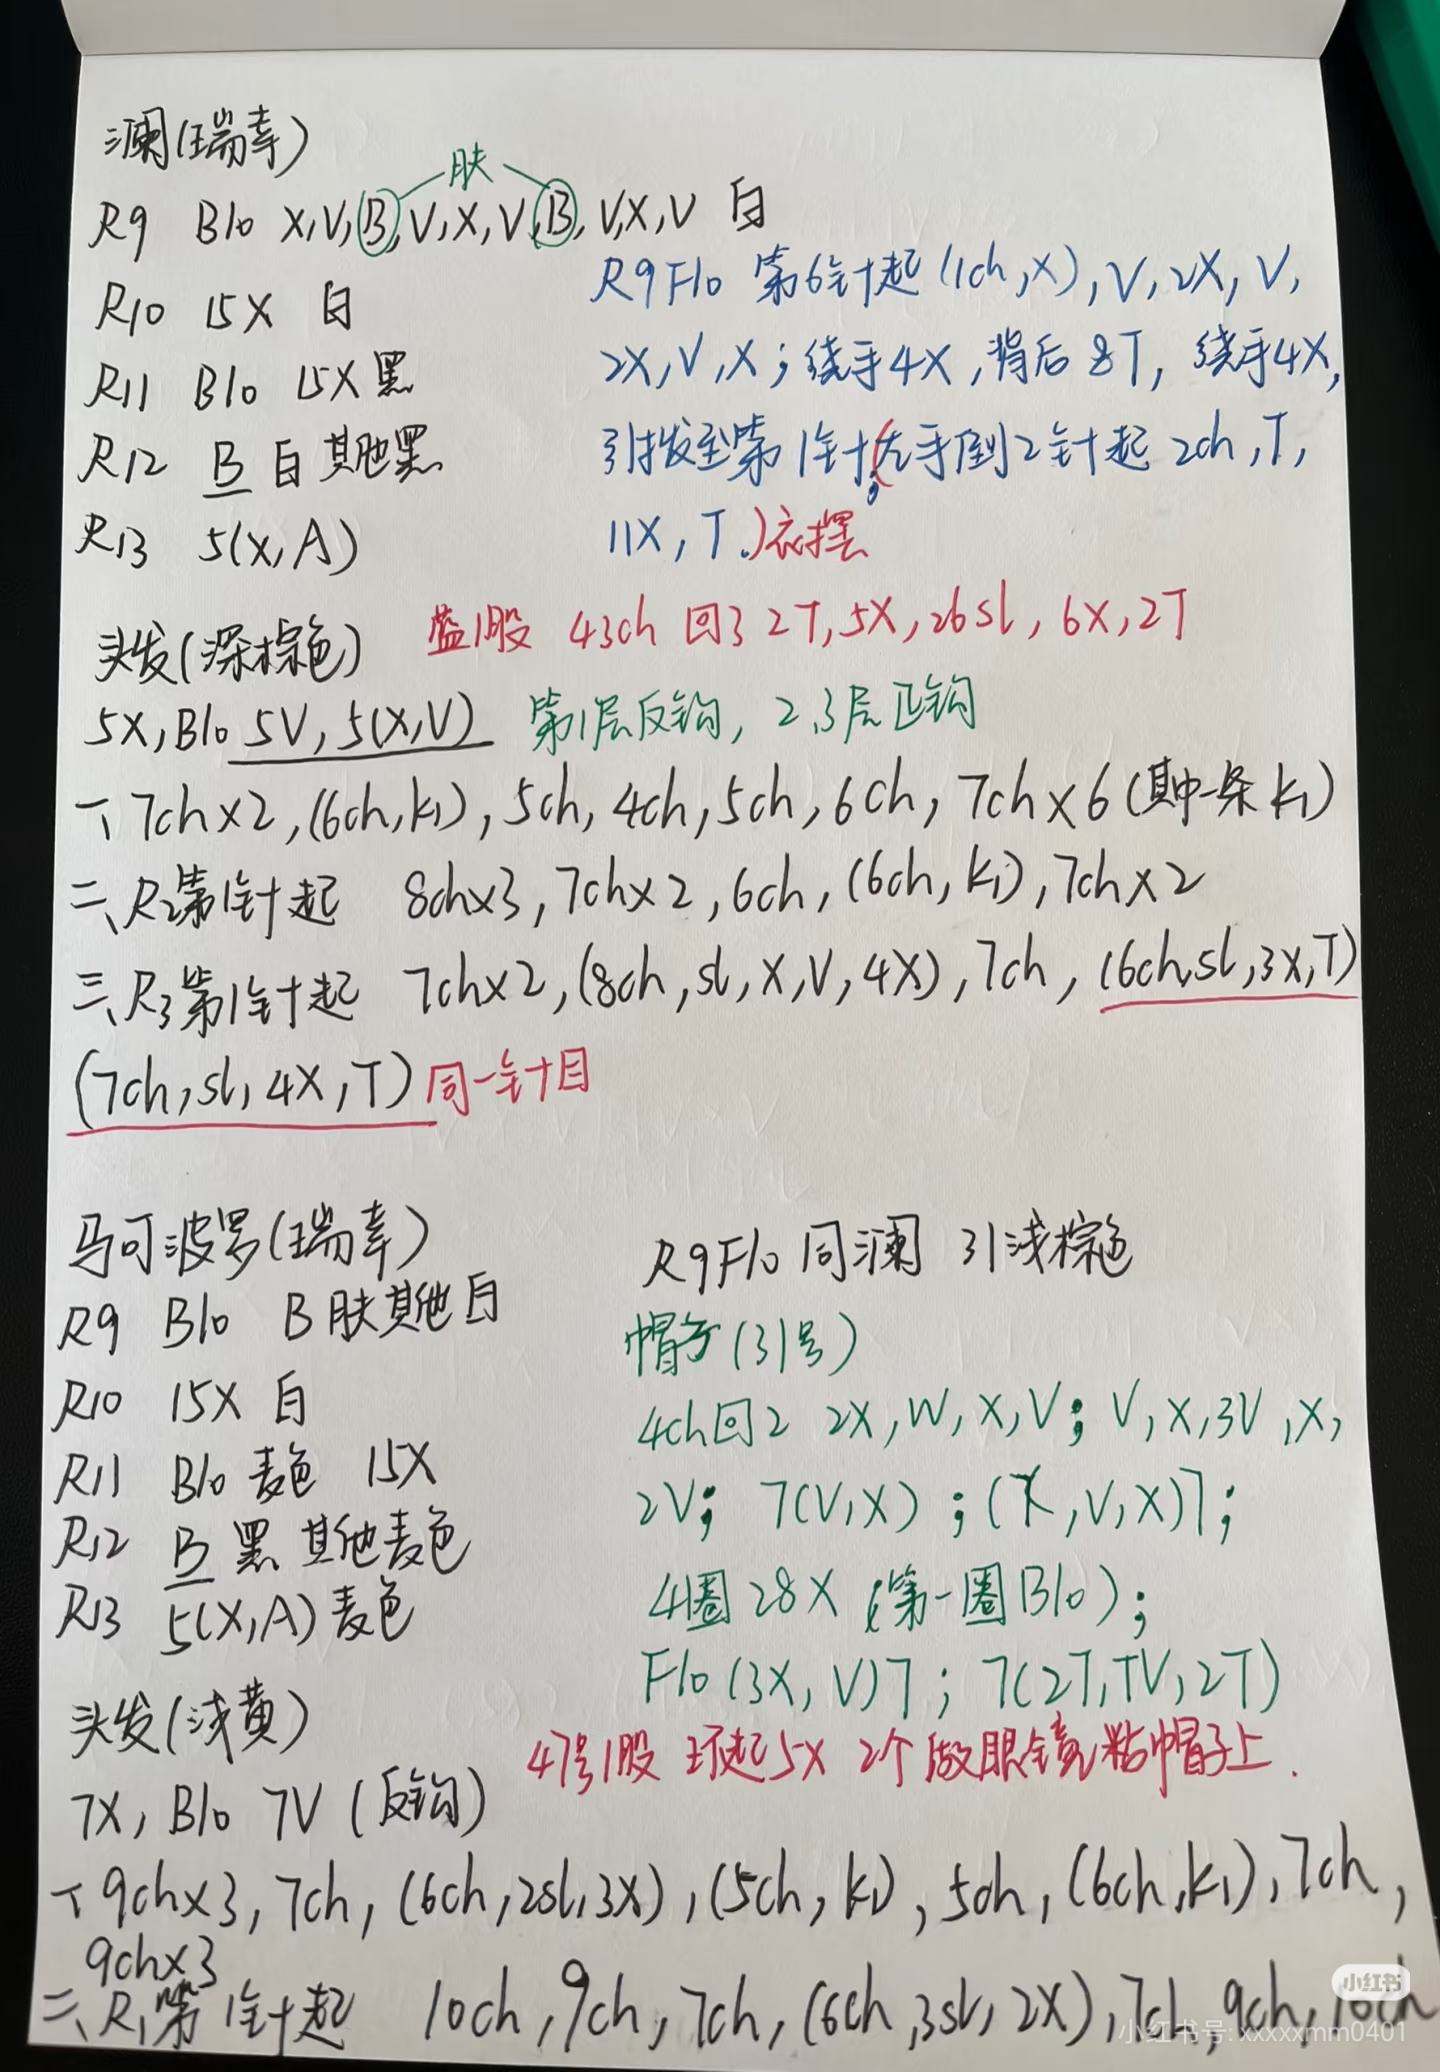 澜(瑞幸)
肤
R9 Blo X,V,B,V,X,V,B,V,X,V 白
R10 15X 白
R11 Blo 15X 黑
R12 B 白 其他黑
R13 5(X,A)
R9 Flo 第6针起(1ch,X),V,2X,V,
2X,V,X;绕手4X,背后8T,绕手4X,
引拔至第1针;(左手倒2针起2ch,T,
11X,T.)衣摆
头发(深棕色)
蓝1股 43ch 回3 2T,5X,26sl,6X,2T
5X,Blo 5V,5(X,V) 第1层反钩,2,3层正钩
一、7ch×2,(6ch,k1),5ch,4ch,5ch,6ch,7ch×6(其中一条k1)
二、R2第1针起 8ch×3,7ch×2,6ch,(6ch,k1),7ch×2
三、R3第1针起 7ch×2,(8ch,sl,X,V,4X),7ch,(6ch,sl,3X,T)
(7ch,sl,4X,T)同一针目
马可波罗(瑞幸)
R9 Blo B肤其他白
R10 15X 白
R11 Blo 麦色 15X
R12 B 黑 其他麦色
R13 5(X,A)麦色
R9Flo 同澜 引浅棕色
帽子(31号)
4ch回2 2X,W,X,V;V,X,3V,X,
2V;7(V,X);(X,V,X)7;
4圈28X(第一圈Blo);
Flo(3X,V)7;7(2T,TV,2T)
47号1股 环起5X 2个做眼镜粘帽子上.
头发(浅黄)
7X,Blo 7V(反钩)
一、9ch×3,7ch,(6ch,2sl,3X),(5ch,k1),5ch,(6ch,k1),7ch,
9ch×3
二、R1第1针起 10ch,9ch,7ch,(6ch,3sl,2X),7ch,9ch,10ch
小红书
小红书号:xxxxxmm0401